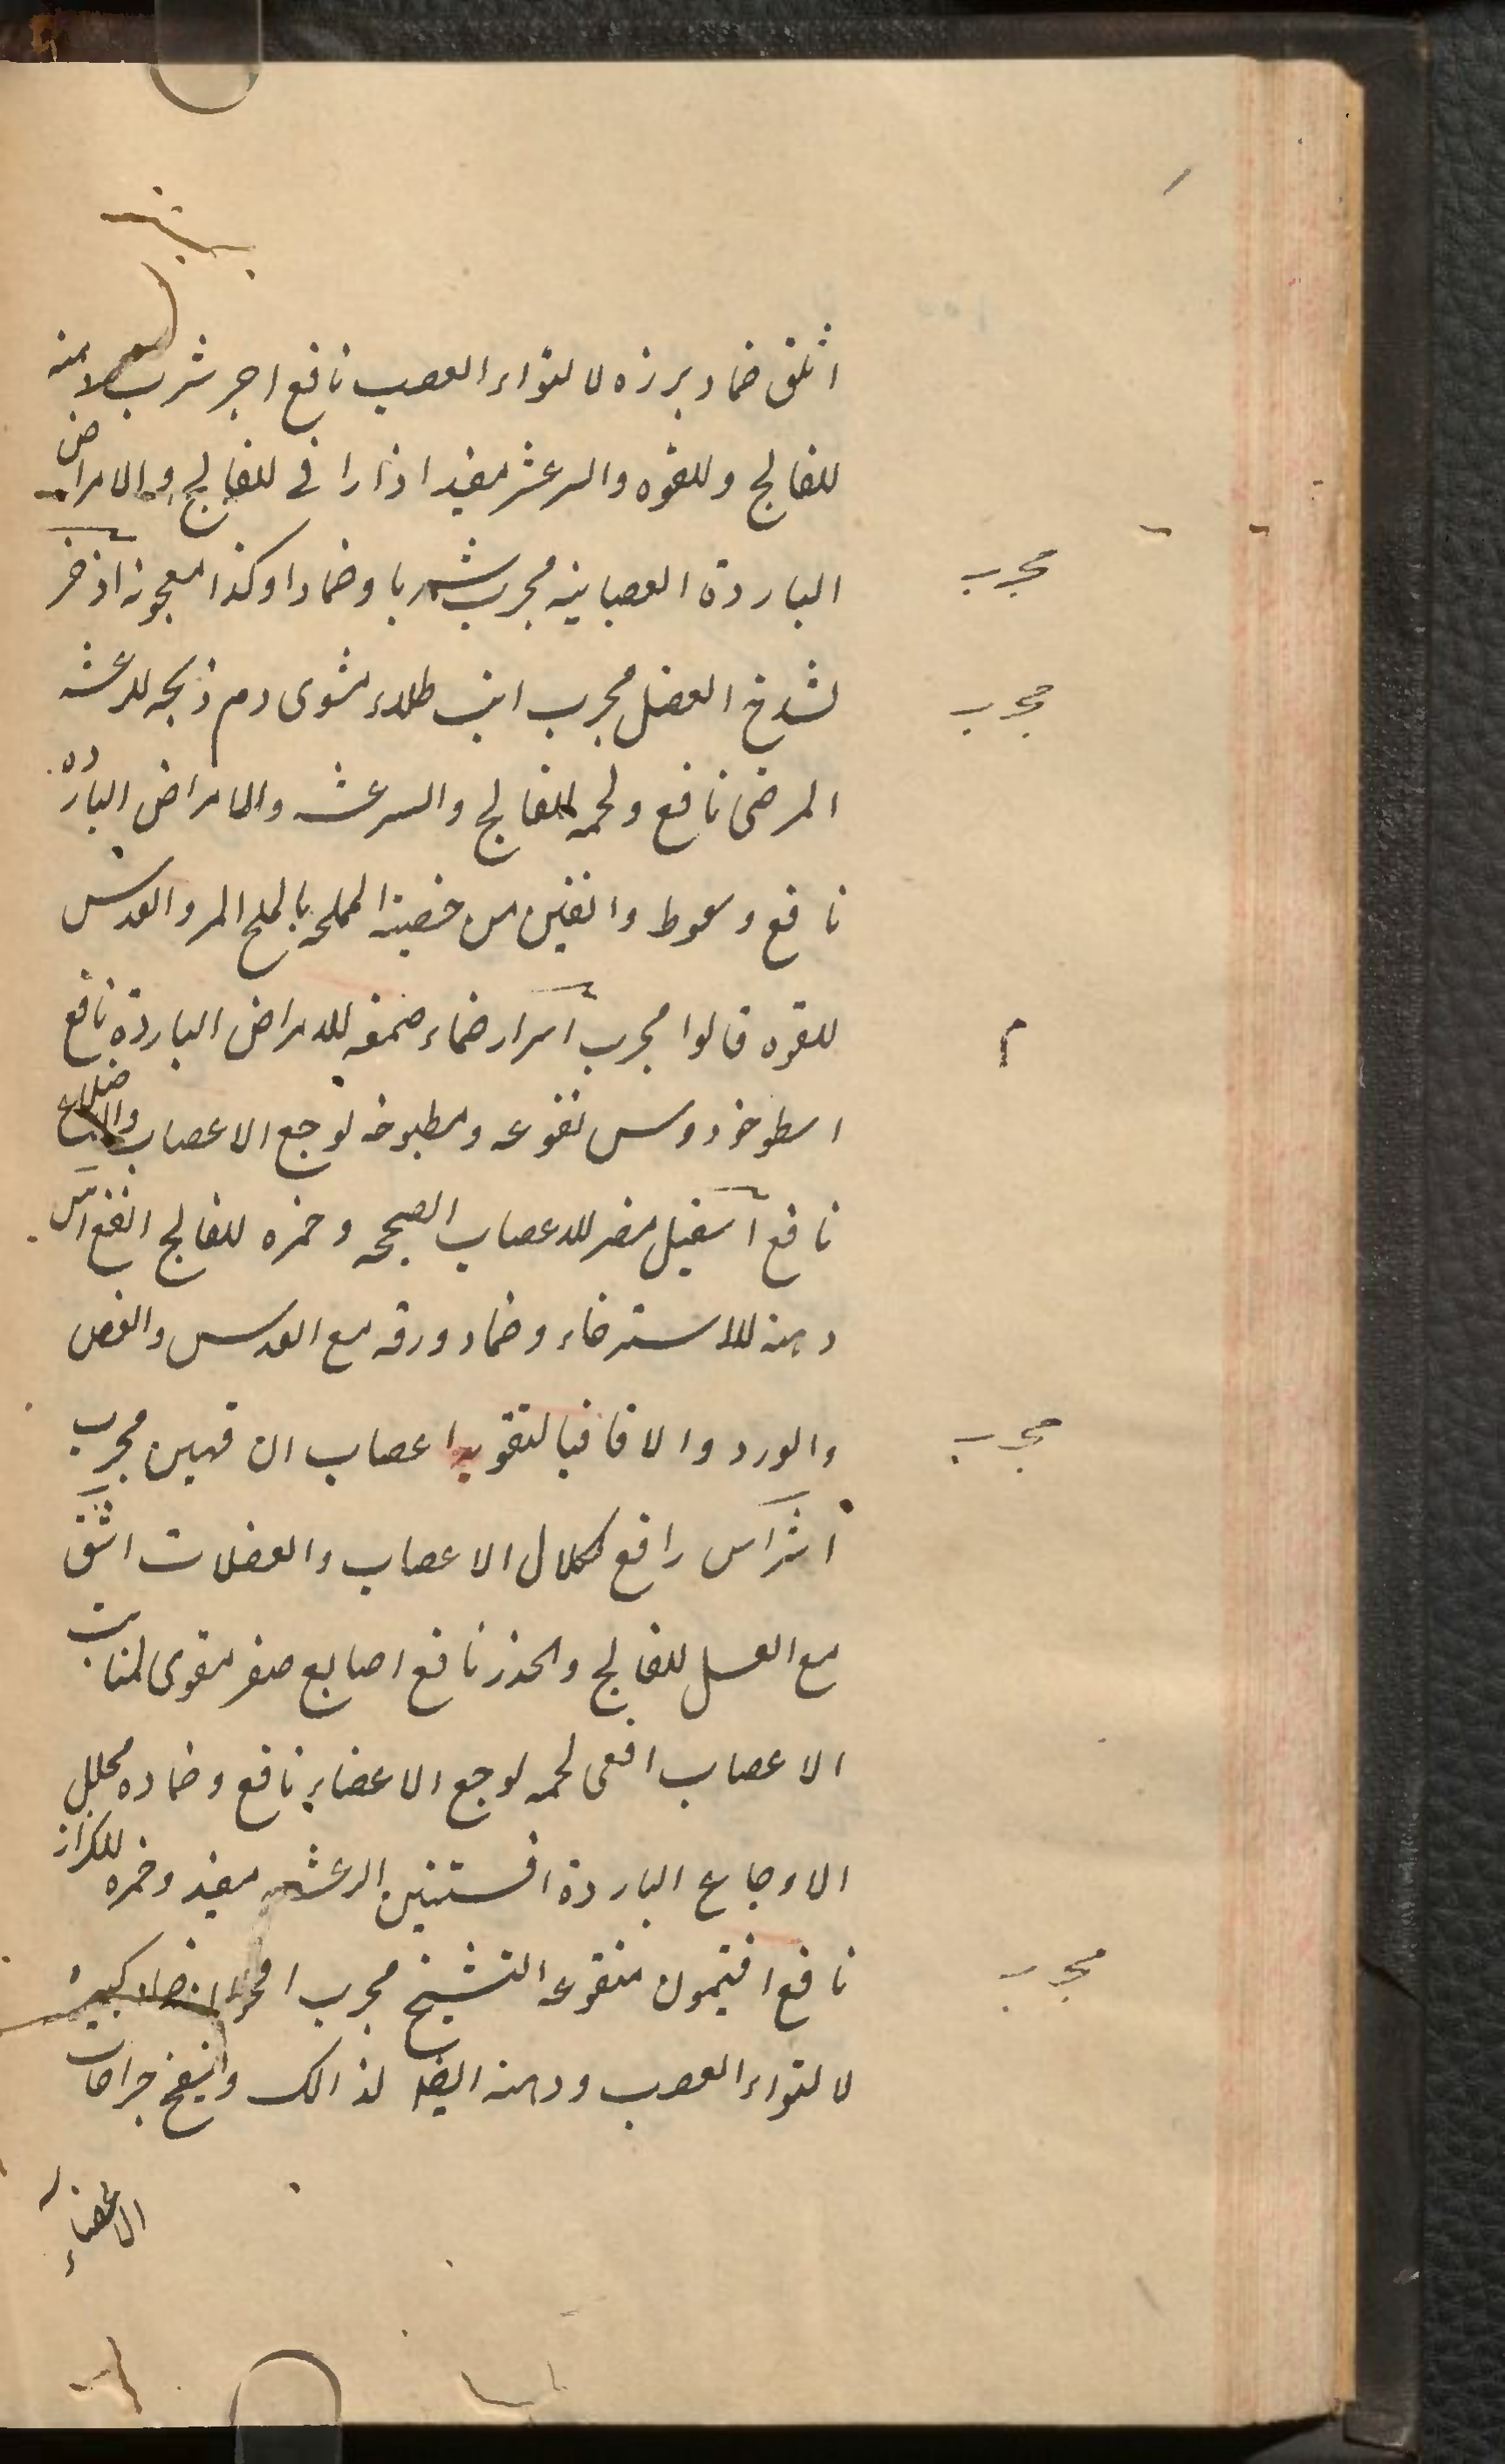 اثلق ضماد برزه لالتواء العصب نافع اجر شرب
للفالج وللقوه والرعشه مفيد اذاراقى للفالج والامراض
الباردة العصبانيه مجرب شربا وضمادا وكذا معجونه اذخر
مجرب
لشدخ العضل مجرب ارنب طلاء مشوى دم ذبحه للرعشه
مجرب
المرضى نافع ولحمه للفالج والرعشه والامراض البارده
نافع وسعوط دانقين من خصيته المملحه بالملح المر والعدس
للقوه قالوا مجرب اسرار ضماد صمغه للامراض الباردة نافع
م
اسطوخودوس نقوعه ومطبوخه لوجع الاعصاب والاضلاع
نافع اسقيل مضر للاعصاب الصحيحه وخمره للفالج انفع آس
دهنه للاسترخاء وضماد ورقه مع العدس والعفص
والورد والاقاقيا لتقويه اعصاب ان قهين مجرب
مجرب
اشراس رافع كلال الاعصاب والعضلات اشق
مع العسل للفالج والخدر نافع اصابع صفر مقوى لمنابت
الاعصاب افعى لحمه لوجع الاعضاء نافع وضماده محلل
الاوجاع الباردة افسنتين الرعشه مفيد وخمره للكزاز
نافع افتيمون منقوعه التشنج مجرب
مجرب
لالتواء العصب ودهنه ايضا لذالك وانيفخ جراحات
الاعضاء